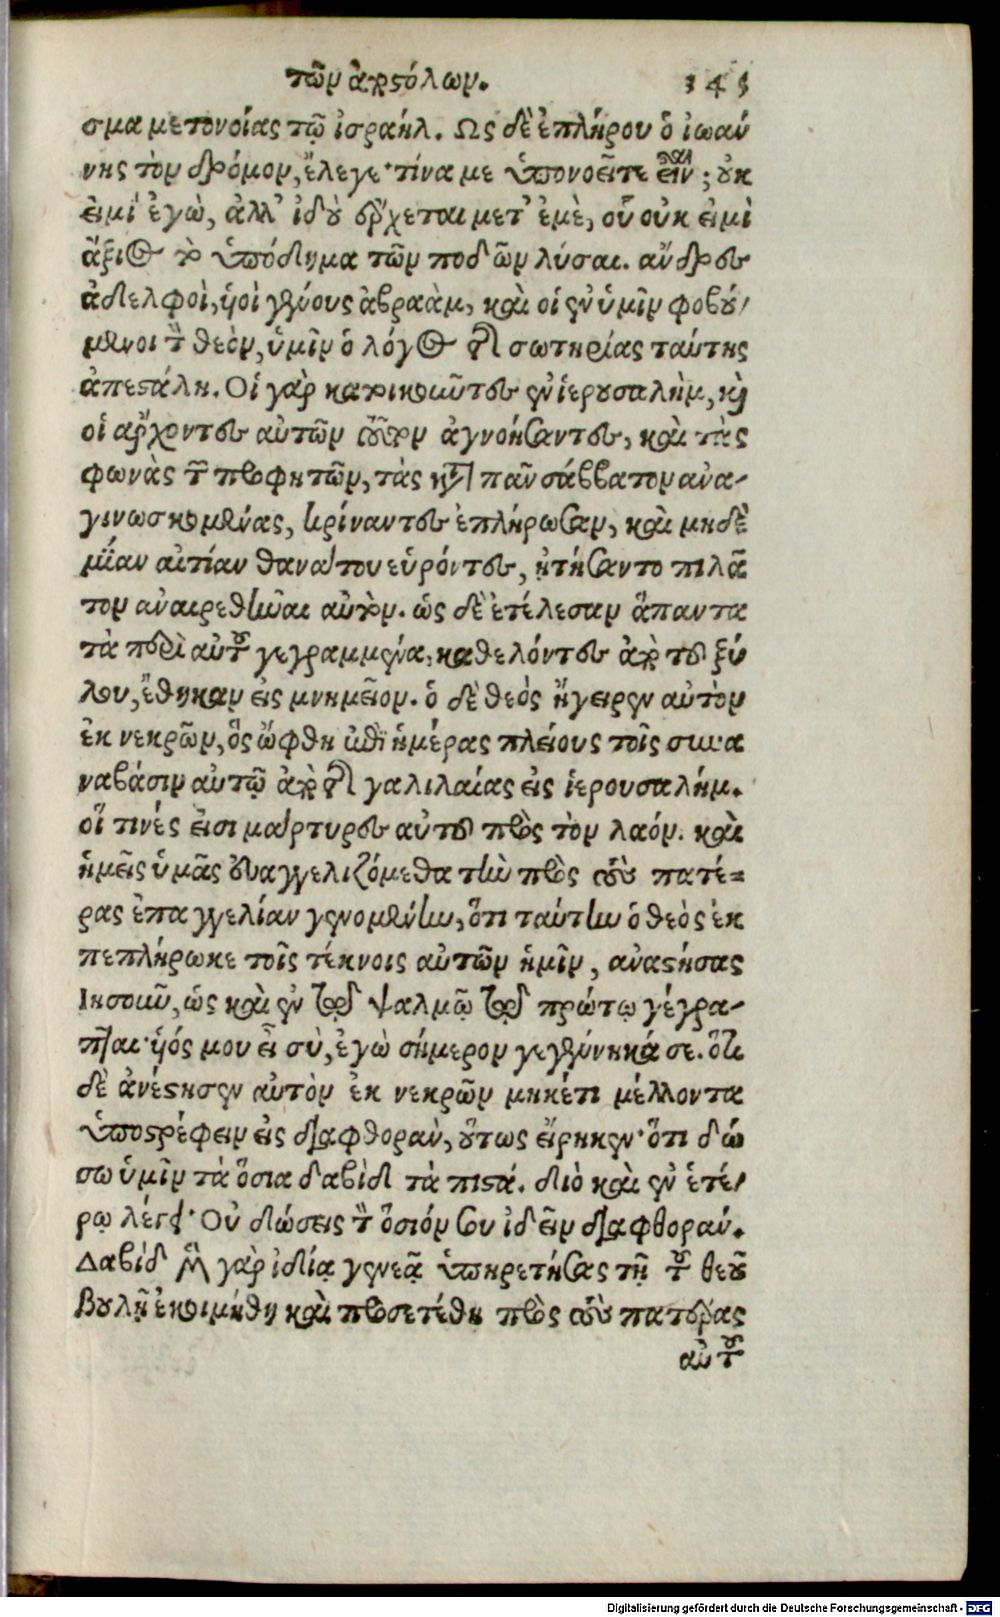 τῶν ἀποστόλων. 145
σμα μετονοίας τῷ ἰσραήλ. Ως δὲ ἐπλήρου ὁ ἰωάν
νης τὸν δρόμον, ἔλεγε· τίνα με ὑπονοεῖτε εἶναι; οὐκ
εἰμὶ ἐγὼ, ἀλλ' ἰδοὺ ἔρχεται μετ' ἐμὲ, οὗ οὐκ εἰμὶ
ἄξιος τὸ ὑπόδημα τῶν ποδῶν λύσαι. ἄνδρες
ἀδελφοὶ, ὑοὶ γένους ἀβραὰμ, καὶ οἱ ἐν ὑμῖν φοβού/
μενοι τὸν θεὸν, ὑμῖν ὁ λόγος τῆς σωτηρίας ταύτης
ἀπεστάλη. Οἱ γὰρ κατοικοῦντες ἐν ἱερουσαλὴμ, καὶ
οἱ ἄρχοντες αὐτῶν τοῦτον ἀγνοήσαντες, καὶ τὰς
φωνὰς τῶν προφητῶν, τὰς κατὰ πᾶν σάββατον ἀνα-
γινωσκομένας, κρίναντες ἐπλήρωσαν, καὶ μηδὲ
μίαν αἰτίαν θανάτου εὑρόντες, ᾐτήσαντο πιλᾶ
τον ἀναιρεθῆναι αὐτὸν. ὡς δὲ ἐτέλεσαν ἅπαντα
τὰ περὶ αὐτοῦ γεγραμμένα, καθελόντες ἀπὸ τοῦ ξύ
λου, ἔθηκαν εἰς μνημεῖον. ὁ δὲ θεὸς ἤγειρεν αὐτὸν
ἐκ νεκρῶν, ὃς ὤφθη ἐπὶ ἡμέρας πλείους τοῖς συνα
ναβάσιν αὐτῷ ἀπὸ τῆς γαλιλαίας εἰς ἱερουσαλήμ.
οἵ τινές εἰσι μάρτυρες αὐτοῦ πρὸς τὸν λαόν. καὶ
ἡμεῖς ὑμᾶς εὐαγγελιζόμεθα τὴν πρὸς τοὺς πατέ=
ρας ἐπαγγελίαν γενομένην, ὅτι ταύτην ὁ θεὸς ἐκ
πεπλήρωκε τοῖς τέκνοις αὐτῶν ἡμῖν, ἀναστήσας
Ιησοῦν, ὡς καὶ ἐν τῷ ψαλμῷ τῷ πρώτῳ γέγρα-
πται· ὑός μου εἶ σὺ, ἐγὼ σήμερον γεγέννηκά σε. ὅτι
δὲ ἀνέστησεν αὐτὸν ἐκ νεκρῶν μηκέτι μέλλοντα
ὑποστρέφειν εἰς διαφθορὰν, οὕτως εἴρηκεν· ὅτι δώ
σω ὑμῖν τὰ ὅσια δαβὶδ τὰ πιστά. διὸ καὶ ἐν ἑτέ/
ρῳ λέγει· Οὐ δώσεις τὸν ὅσιόν σου ἰδεῖν διαφθοράν.
Δαβὶδ μὲν γὰρ ἰδίᾳ γενεᾷ ὑπηρετήσας τῇ τοῦ θεοῦ
βουλῇ ἐκοιμήθη καὶ προσετέθη πρὸς τοὺς πατέρας
αὐτοῦ
Digitalisierung gefördert durch die Deutsche Forschungsgemeinschaft - DFG